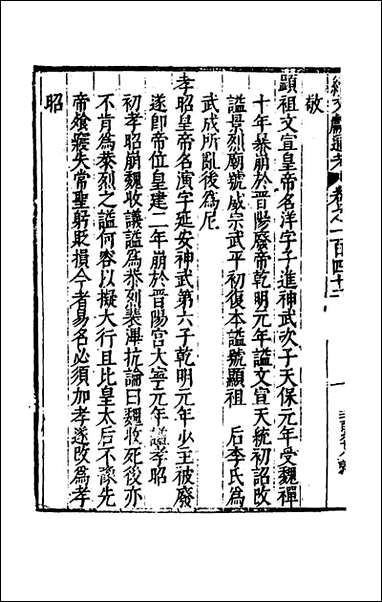 續文獻通考 卷之一百四十二
敬
顯祖文宣皇帝名洋字子進神武次子天保元年受魏禪
十年暴崩於晉陽廢帝乾明元年謚文宣天統初詔改
謚景烈廟號威宗武平初復本謚號顯祖 后李氏爲
武成所亂後爲尼
孝昭皇帝名演字延安神武第六子乾明元年少主被廢
遂即帝位皇建二年崩於晉陽宮大寧元年謚孝昭
初孝昭崩魏收議謚爲恭烈裴澤抗論曰魏收死後亦
不肯爲恭烈之謚何容以擬大行且比皇太后不豫先
帝飱寢失常聖躬貶損今者易名必須加孝遂改爲孝
昭